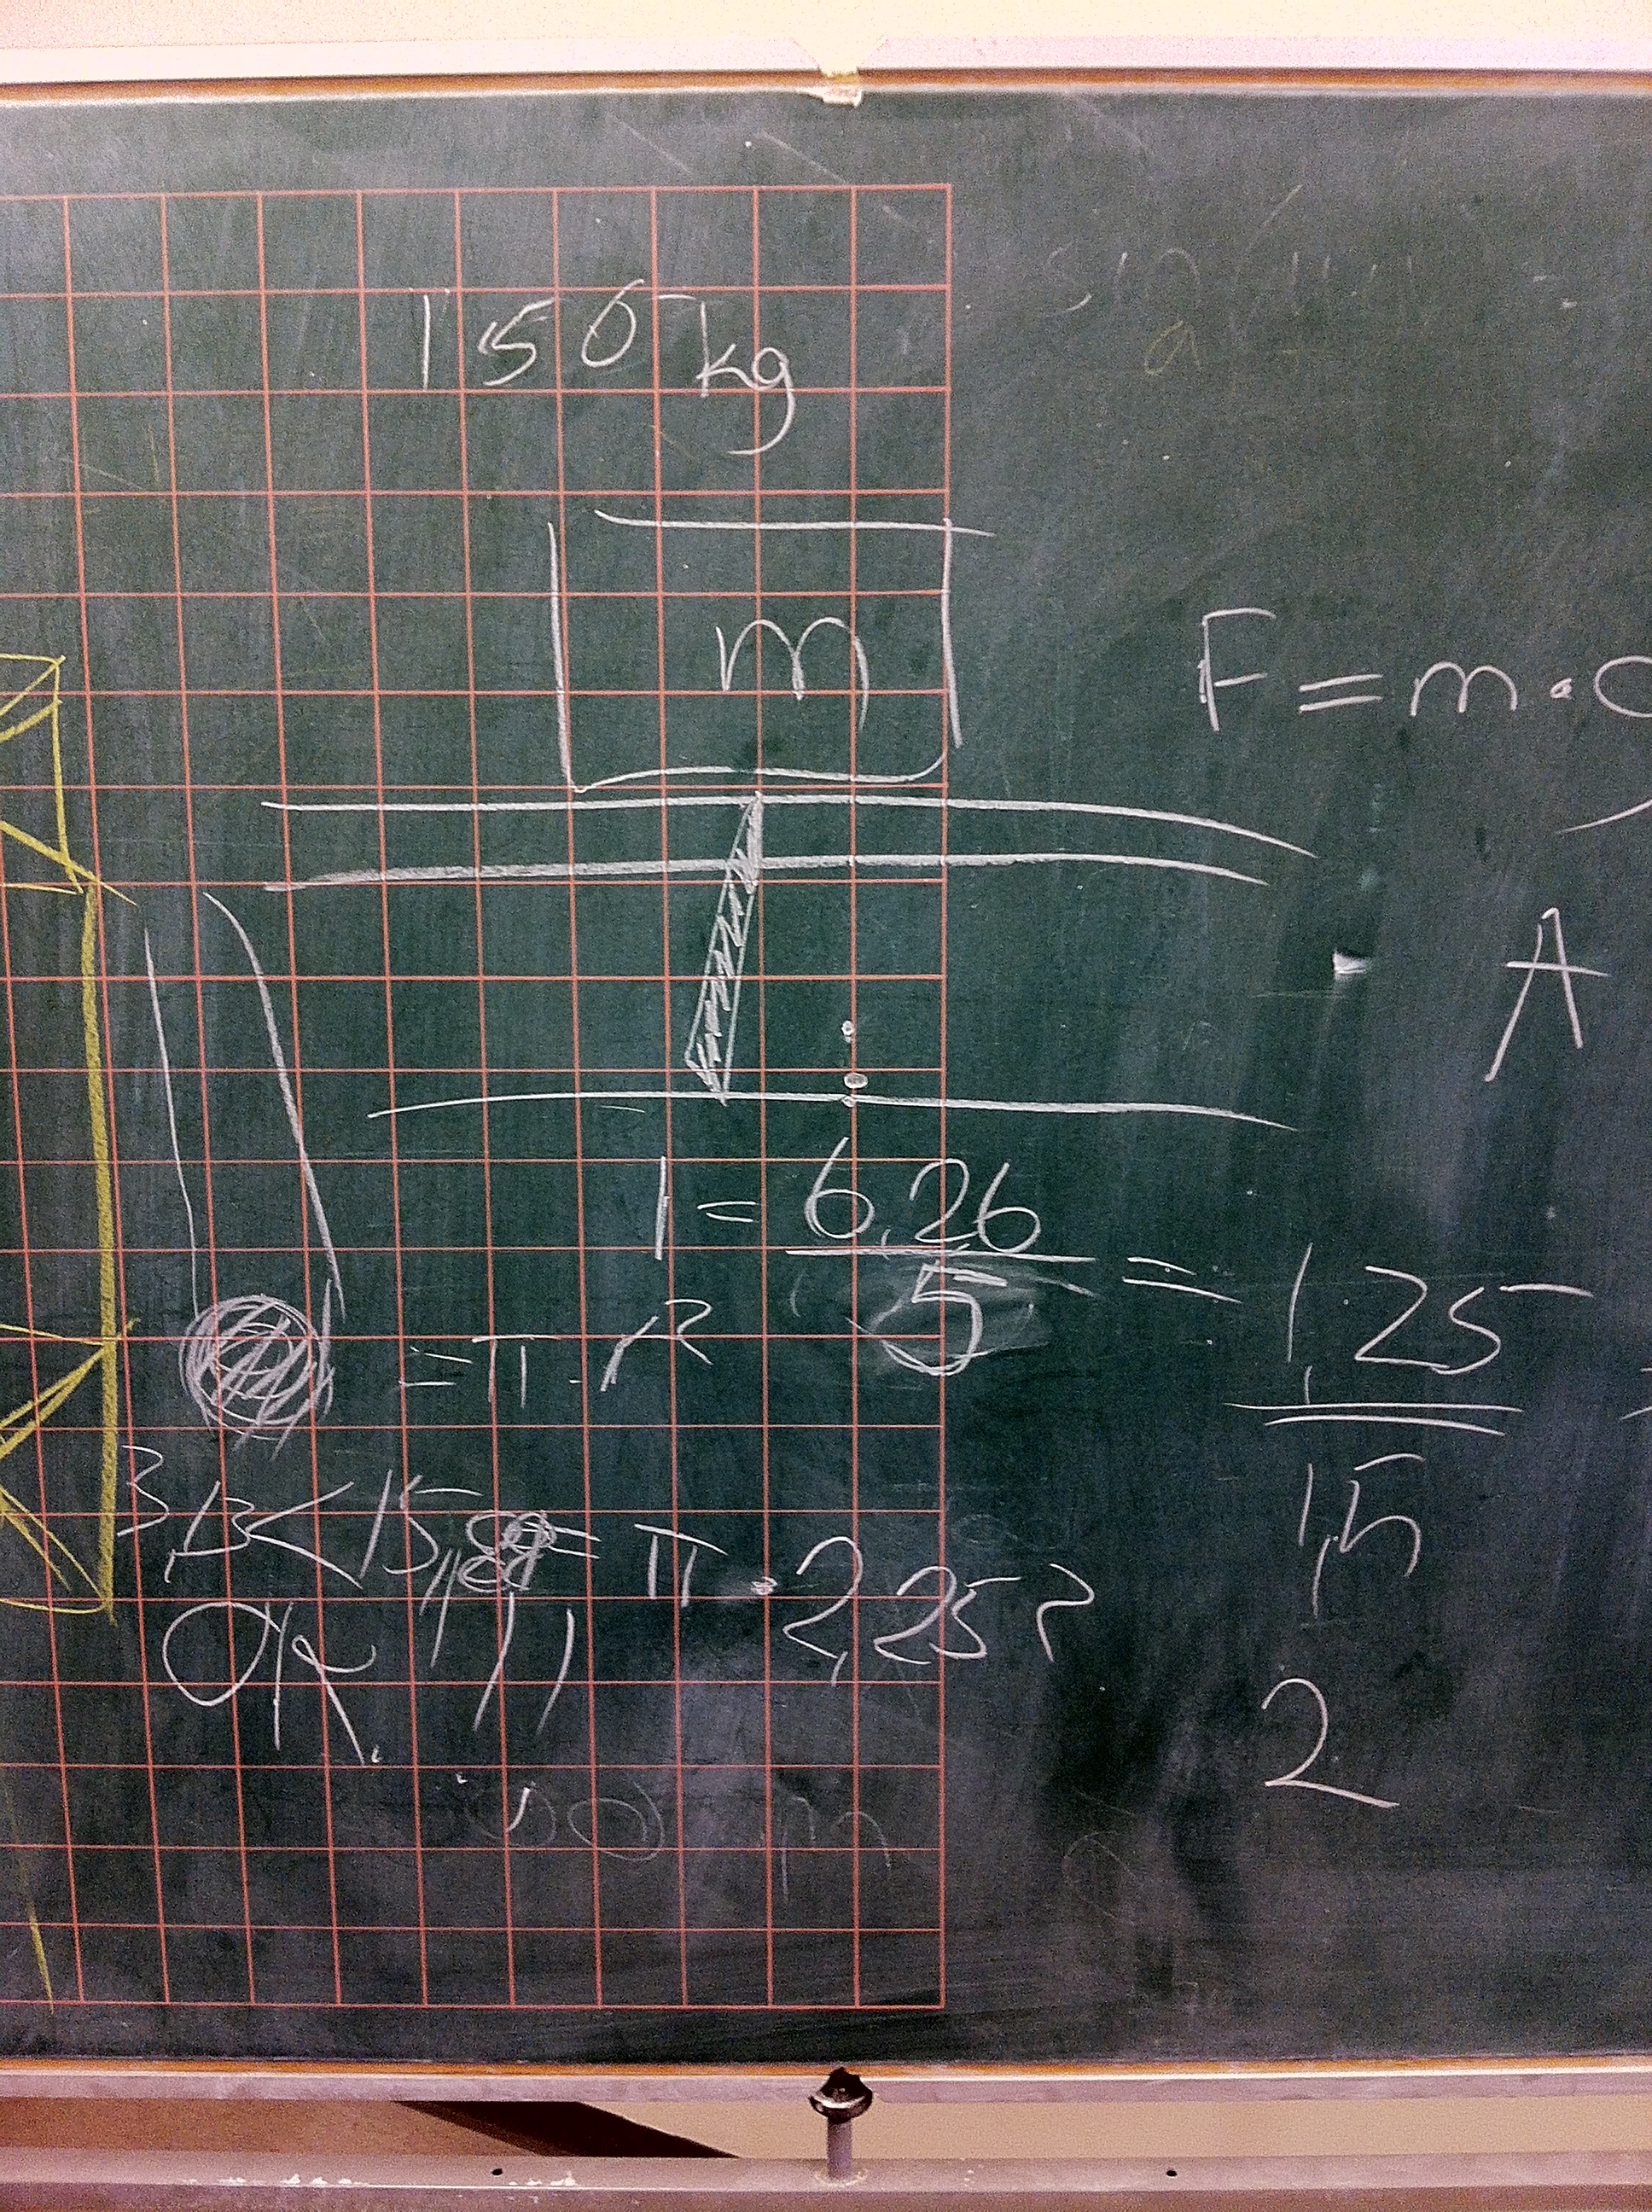 150 kg
m
F = m ·
A
1 = 6,26 / 5 = 1,25
= π · r²
1,5
3,13 < 15, = π · 2,25²
OK !!
2